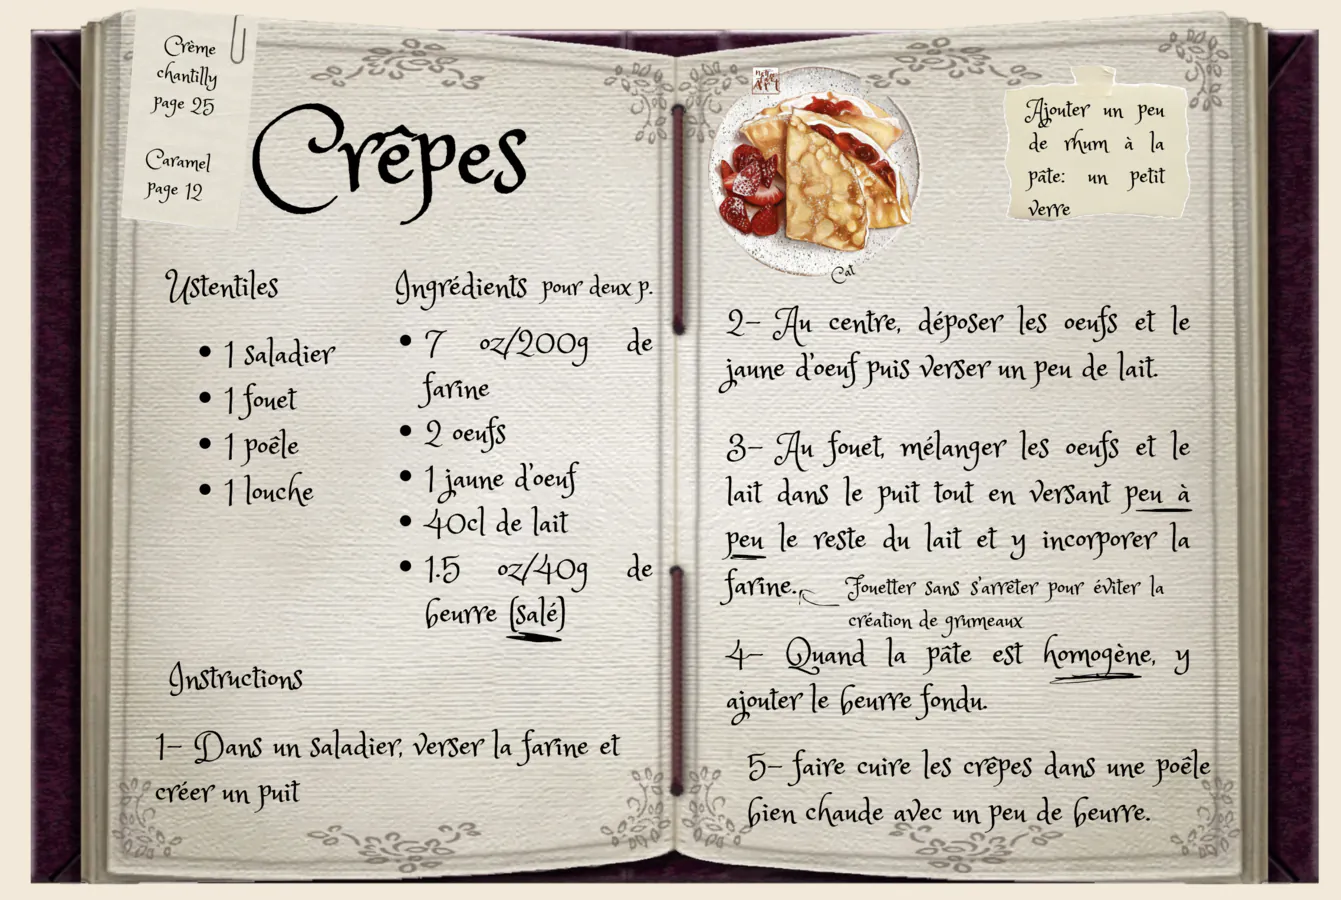 Crème
chantilly
Page 25
Caramel
Page 12
Crêpes
Ustentiles
1 saladier
1 fouet
1 poêle
1 louche
Ingrédients pour deux p.
7 oz/200g de
farine
2 oeufs
1 jaune d'oeuf
40cl de lait
1.5 oz/40g de
beurre (salé)
Instructions
1- Dans un saladier, verser la farine et
créer un puit
Cat
Ajouter un peu
de rhum à la
pâte: un petit
verre
2- Au centre, déposer les oeufs et le
jaune d'oeuf puis verser un peu de lait.
3- Au fouet, mélanger les oeufs et le
lait dans le puit tout en versant peu à
peu le reste du lait et y incorporer la
farine.
Fouetter sans s'arrêter pour éviter la
création de grumeaux
4- Quand la pâte est homogène, y
ajouter le beurre fondu.
5- faire cuire les crêpes dans une poêle
bien chaude avec un peu de beurre.